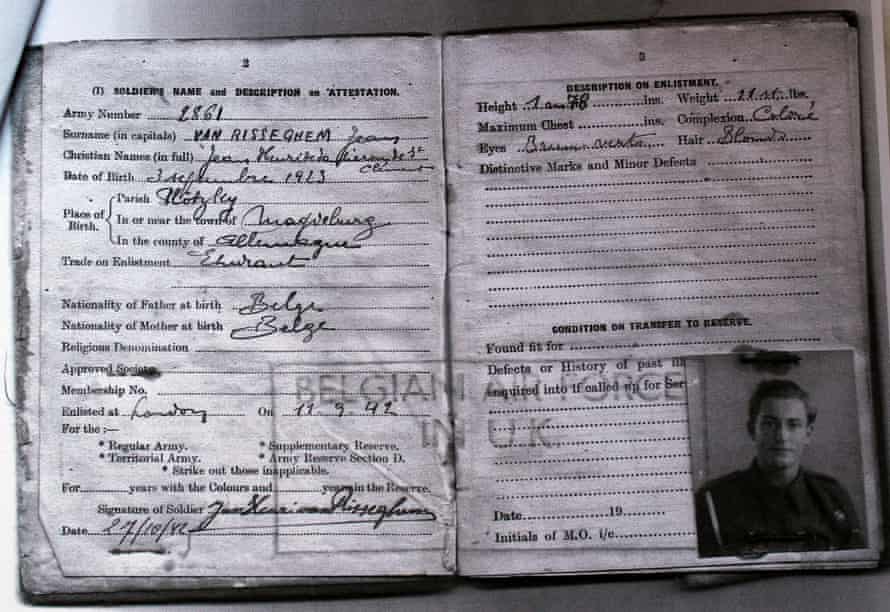 2
(I) SOLDIER'S NAME and DESCRIPTION on ATTESTATION.
Army Number 2861
Surname (in capitals) VAN RISSEGHEM Jean
Christian Names (in full) Jean Henri
Clément
Date of Birth 3 septembre 1923
Place of Birth.
Parish
In or near the town of Magdeburg
In the county of Allemagne
Trade on Enlistment Etudiant
Nationality of Father at birth Belge
Nationality of Mother at birth Belge
Religious Denomination
Approved Society
Membership No.
Enlisted at London On 11-9-42
For the :—
* Regular Army. * Supplementary Reserve.
* Territorial Army. * Army Reserve Section D.
* Strike out those inapplicable.
For years with the Colours and years in the Reserve.
Signature of Soldier Jean Henri van Risseghem
Date 27/10/42
3
DESCRIPTION ON ENLISTMENT.
Height 1 m 78 ins. Weight lbs.
Maximum Chest ins. Complexion Coloré
Eyes Bruns verts Hair Blonds
Distinctive Marks and Minor Defects
CONDITION ON TRANSFER TO RESERVE.
Found fit for
Defects or History of past
enquired into if called up for Ser
Date 19
Initials of M.O. i/c
BELGIAN FORCE
IN U.K.